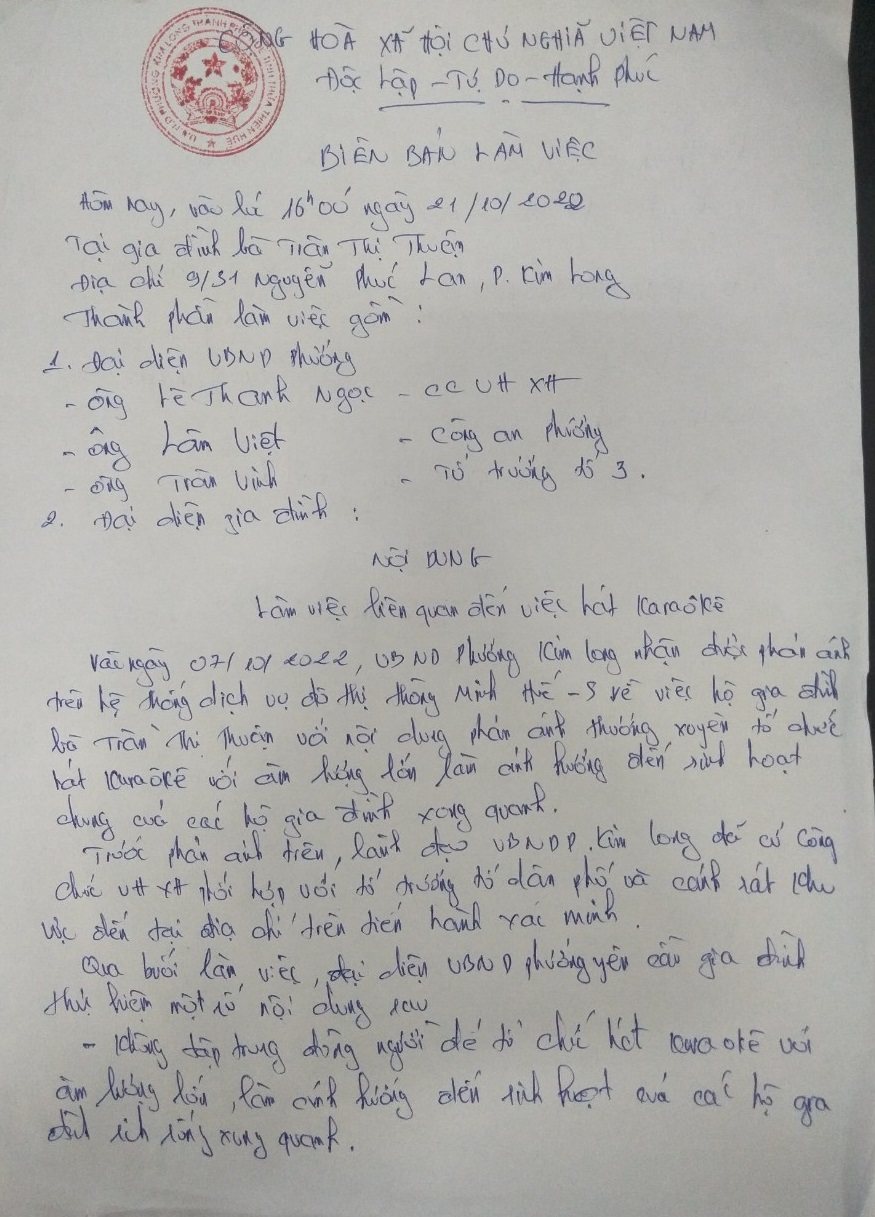 CỘNG HOÀ XÃ HỘI CHỦ NGHĨA VIỆT NAM
Độc Lập - Tự Do - Hạnh Phúc
BIÊN BẢN LÀM VIỆC
Hôm nay, vào lúc 16h00 ngày 21/10/2022
Tại gia đình bà Trần Thị Thuận
Địa chỉ 9/31 Nguyễn Phúc Lan, P. Kim Long
Thành phần làm việc gồm :
1. Đại diện UBND phường
- ông Lê Thanh Ngọc - CC VH XH
- ông Lâm Việt - Công an phường
- ông Trần Vinh - Tổ trưởng tổ 3.
2. Đại diện gia đình :
NỘI DUNG
Làm việc liên quan đến việc hát karaôkê
Vào ngày 07/10/2022, UBND Phường Kim Long nhận được phản ánh
trên hệ thống dịch vụ đô thị thông minh Huế-S về việc hộ gia đình
bà Trần Thị Thuận với nội dung phản ánh thường xuyên tổ chức
hát karaôkê với âm lượng lớn làm ảnh hưởng đến sinh hoạt
chung của các hộ gia đình xong quanh.
Trước phản ánh trên, lãnh đạo UBNDP. Kim Long đã cử Công
chức VH XH phối hợp với tổ trưởng tổ dân phố và cảnh sát khu
vực đến tại địa chỉ trên tiến hành xác minh.
Qua buổi làm việc, đại diện UBND phường yêu cầu gia đình
thực hiện một số nội dung sau
- Không tập trung đông người để tổ chức hát karaokê với
âm lượng lớn, làm ảnh hưởng đến sinh hoạt của các hộ gia
đình sinh sống xung quanh.